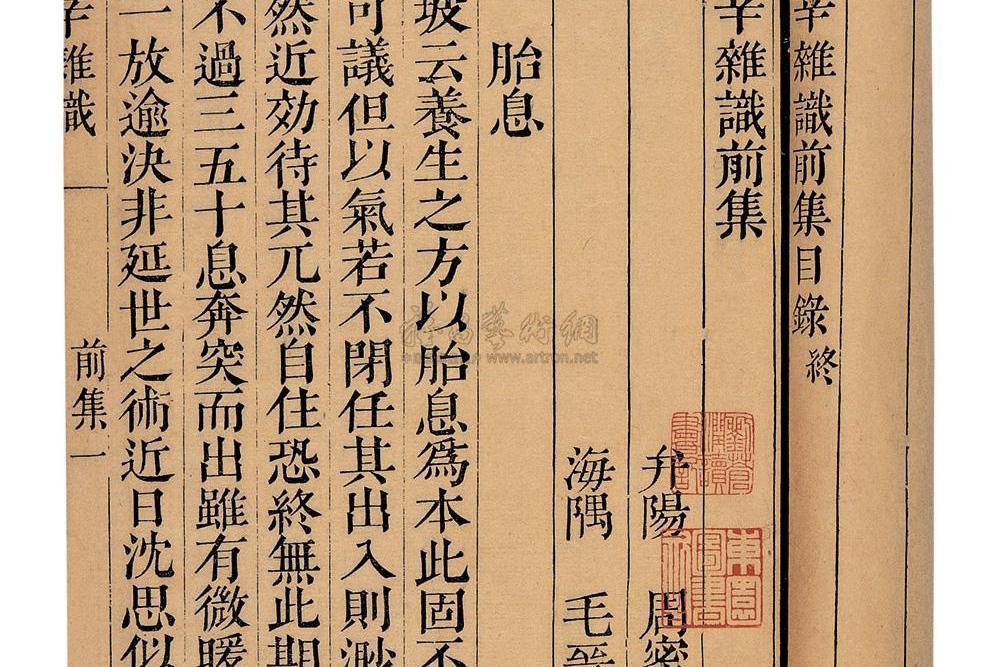 辛雜識前集目錄終
辛雜識前集
弁陽 周密
海隅 毛晉
胎息
坡云養生之方以胎息爲本此固不
可議但以氣若不閉任其出入則渺
然近効待其兀然自住恐終無此期
不過三五十息奔突而出雖有微暖
一放逾決非延世之術近日沈思似
辛雜識 前集一
雅昌藝術網
www.artron.net